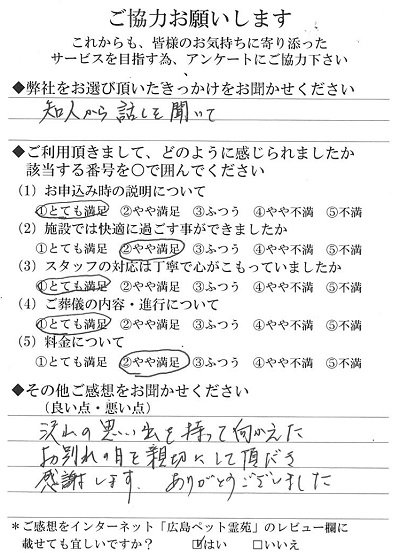 ご協力お願いします
これからも、皆様のお気持ちに寄り添った
サービスを目指す為、アンケートにご協力下さい
◆弊社をお選び頂いたきっかけをお聞かせください
知人から話しを聞いて
◆ご利用頂きまして、どのように感じられましたか
該当する番号を〇で囲んでください
(1) お申込み時の説明について
①とても満足 ②やや満足 ③ふつう ④やや不満 ⑤不満
(2) 施設では快適に過ごす事ができましたか
①とても満足 ②やや満足 ③ふつう ④やや不満 ⑤不満
(3) スタッフの対応は丁寧で心がこもっていましたか
①とても満足 ②やや満足 ③ふつう ④やや不満 ⑤不満
(4) ご葬儀の内容・進行について
①とても満足 ②やや満足 ③ふつう ④やや不満 ⑤不満
(5) 料金について
①とても満足 ②やや満足 ③ふつう ④やや不満 ⑤不満
◆その他ご感想をお聞かせください
(良い点・悪い点)
沢山の思い出を持って向かえた
お別れの日を親切にして頂き
感謝します。ありがとうございました
*ご感想をインターネット「広島ペット霊苑」のレビュー欄に
載せても宜しいですか? ☑はい □いいえ